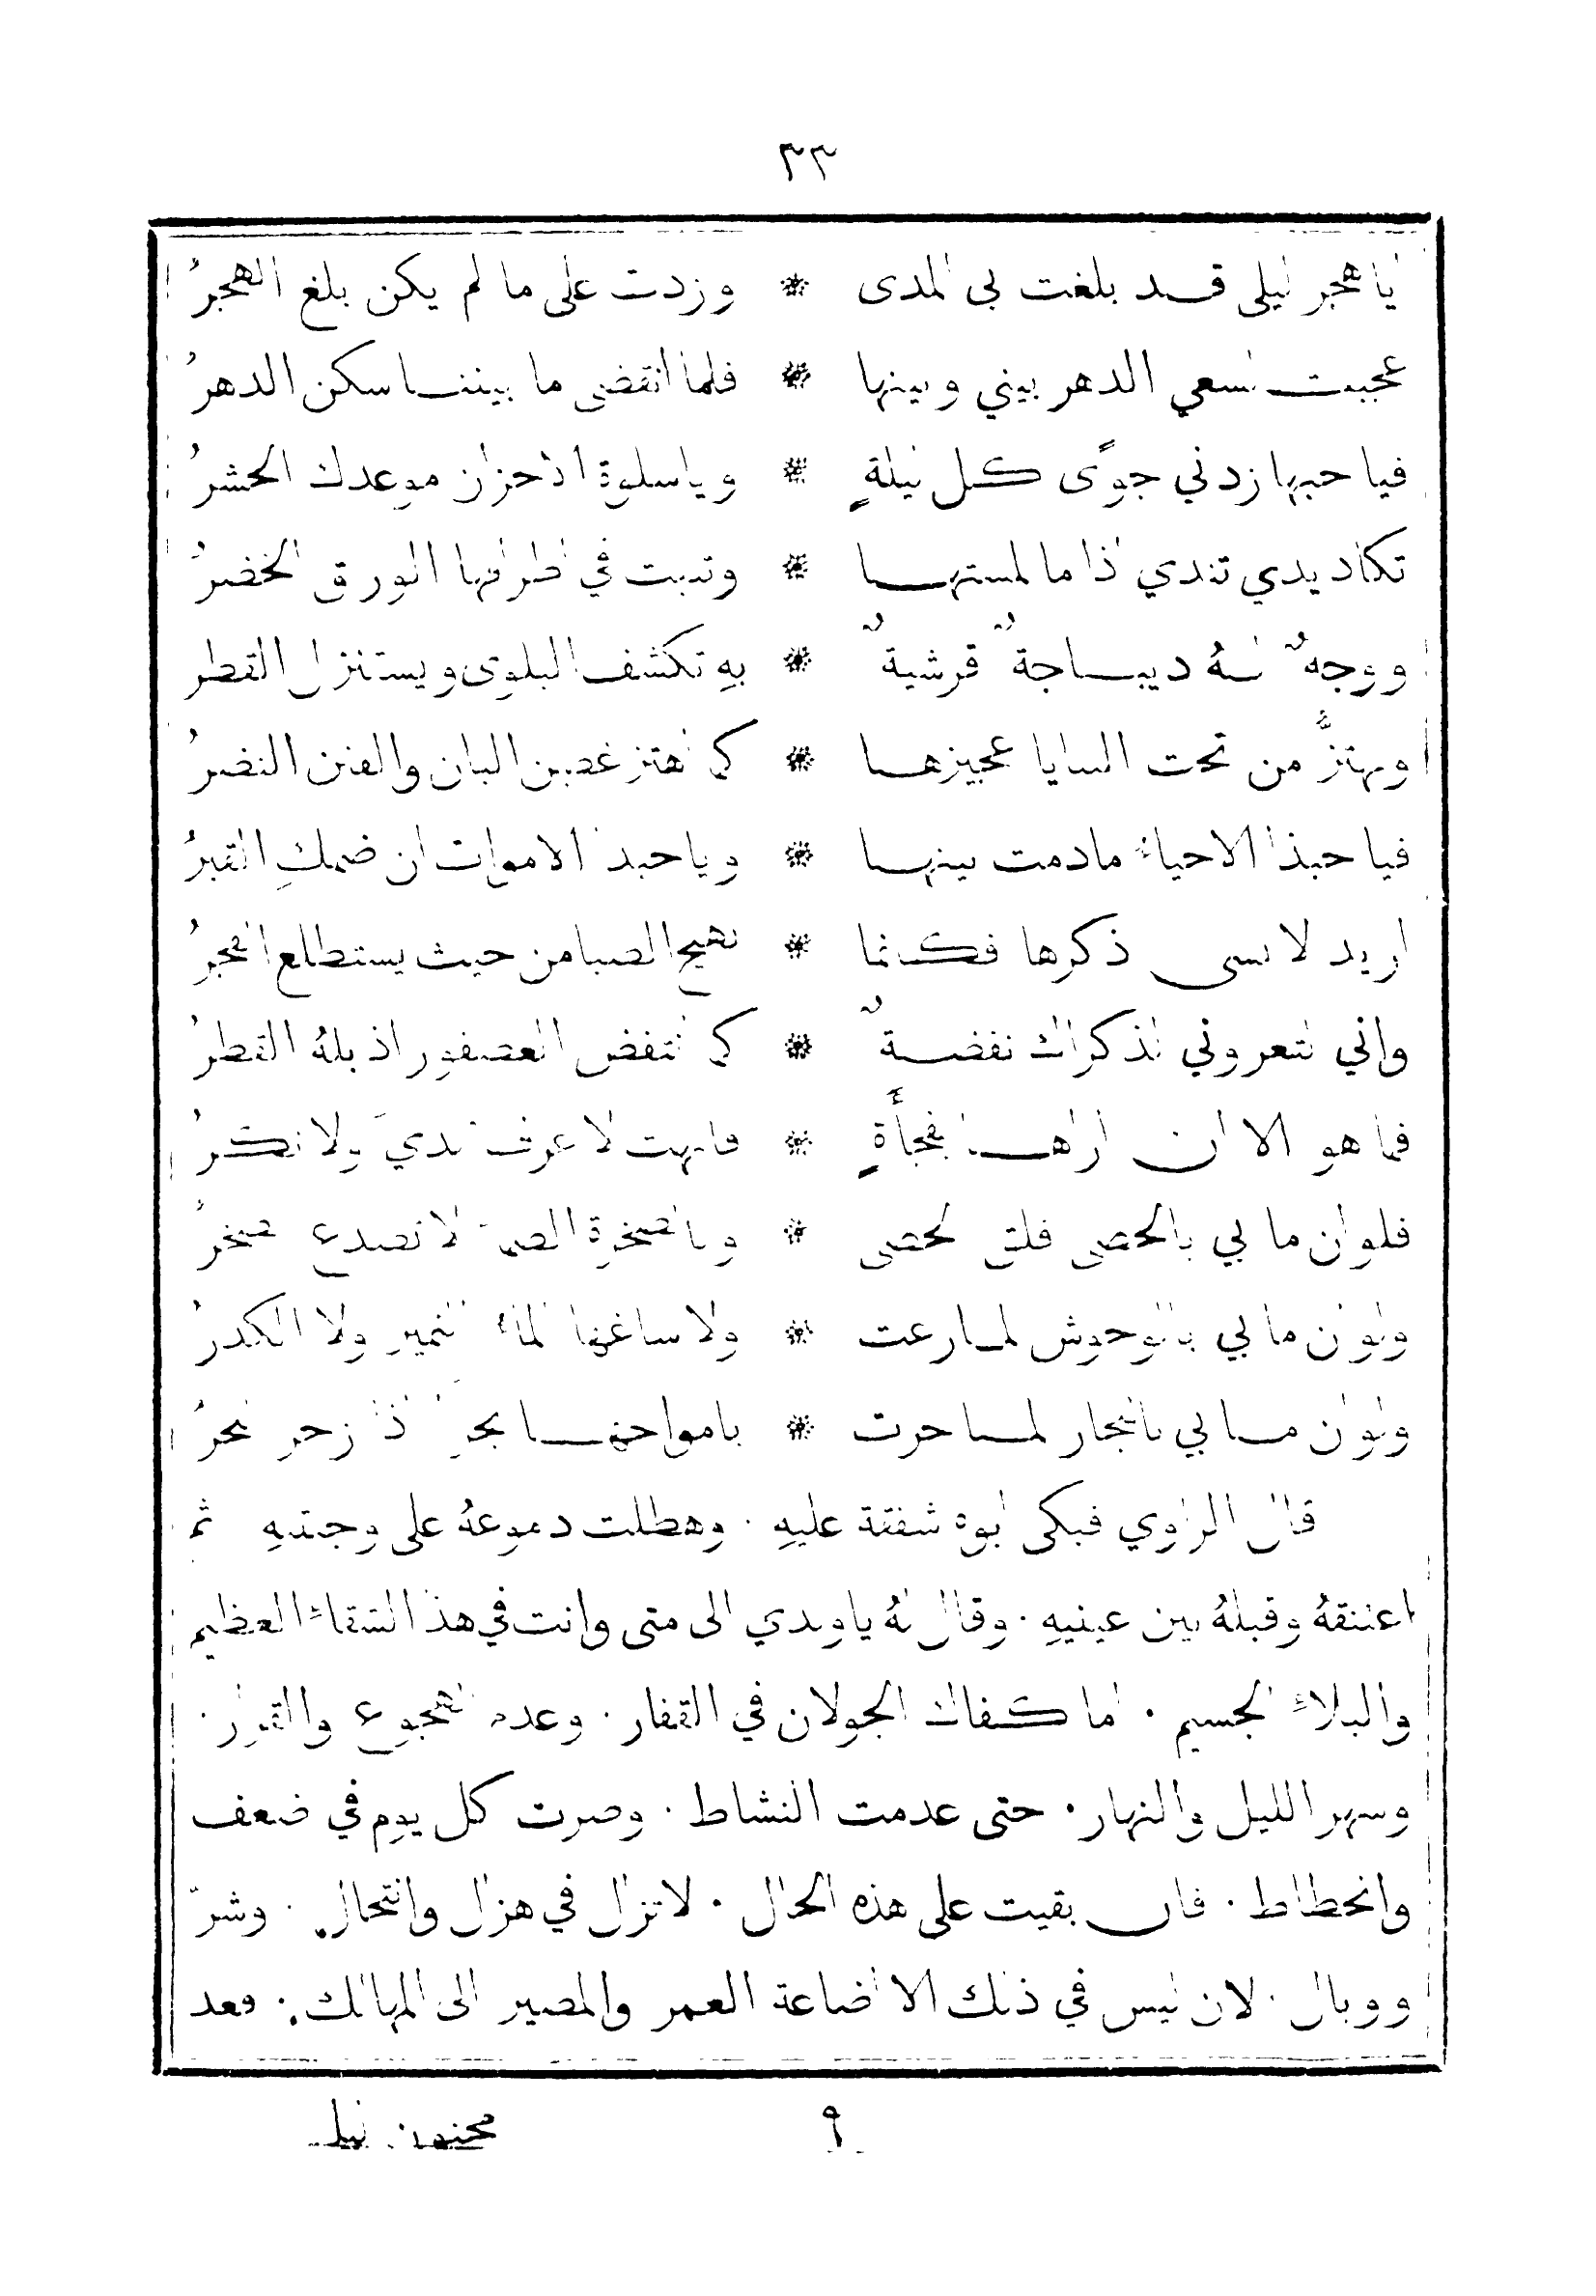 ٣٣
ايا هجر ليلى قد بلغت بي المدى * وزدت على ما لم يكن بلغ الهجرُ
عجبت لسعي الدهر بيني وبينها * فلما انقضى ما بيننا سكن الدهرُ
فيا حبها زدني جوًى كل ليلةٍ * ويا سلوة الاحزان موعدك الحشرُ
تكاد يدي تندي اذا ما لمستها * وتنبت في اطرافها الورق الخضرُ
ووجهٌ لهُ ديباجةٌ قرشيةٌ * بهِ تكشف البلوى ويستنزل القطر
ويهتزُّ من تحت الثيابا عجيزها * كما اهتز غصن البان والفنن النضرُ
فيا حبذا الاحياءُ ما دمت بينها * ويا حبذا الاموات ان ضمكِ القبرُ
اريد لانسى ذكرها فكانما * تهيج الصبا من حيث يستطلع الفجرُ
واني لتعروني لذكراك نفضةٌ * كما انتفض العصفور اذ بلهُ القطرُ
فما هو الا ان اراها فجأةٍ * فابهت لا عرف لديَ ولا نكرُ
فلو ان ما بي بالحصى فلق الحصى * وبالصخرة الصماء لانصدع الصخرُ
ولو ان ما بي بالوحوش لما رعت * ولا ساغها الماءُ النمير ولا الكدرُ
ولو ان ما بي بالبحار لما جرت * بامواجها بحرٌ اذا زخر البحرُ
قال الراوي فبكى ابوه شفقة عليهِ · وهطلت دموعهُ على وجنتيهِ ثم
اعتنقهُ وقبلهُ بين عينيهِ · وقال لهُ يا ولدي الى متى وانت في هذا الشقاءُ العظيم
والبلاءُ الجسيم · اما كفاك الجولان في القفار · وعدم الهجوع والقرار ·
وسهر الليل والنهار · حتى عدمت النشاط · وصرت كل يوم في ضعف
وانحطاط · فان بقيت على هذه الحال · لا تزال في هزال وانتحال · وشرّ
ووبال · لان ليس في ذلك الا اضاعة العمر والمصير الى المهالك · فعد
٩ مجنون ليلى